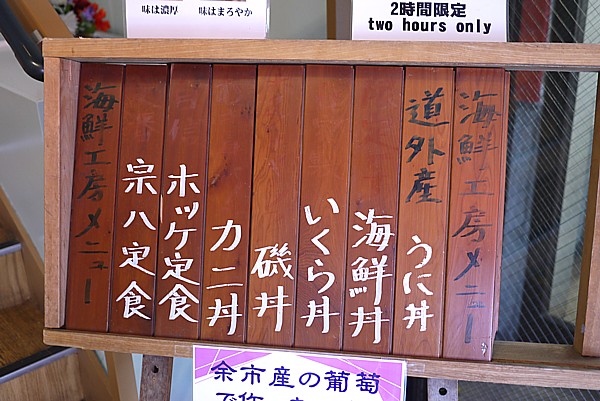 味は濃厚
味はまろやか
2時間限定
two hours only
海鮮工房メニュー
道外産 うに丼
海鮮丼
いくら丼
磯丼
カニ丼
ホッケ定食
宗八定食
海鮮工房メニュー
余市産の葡萄